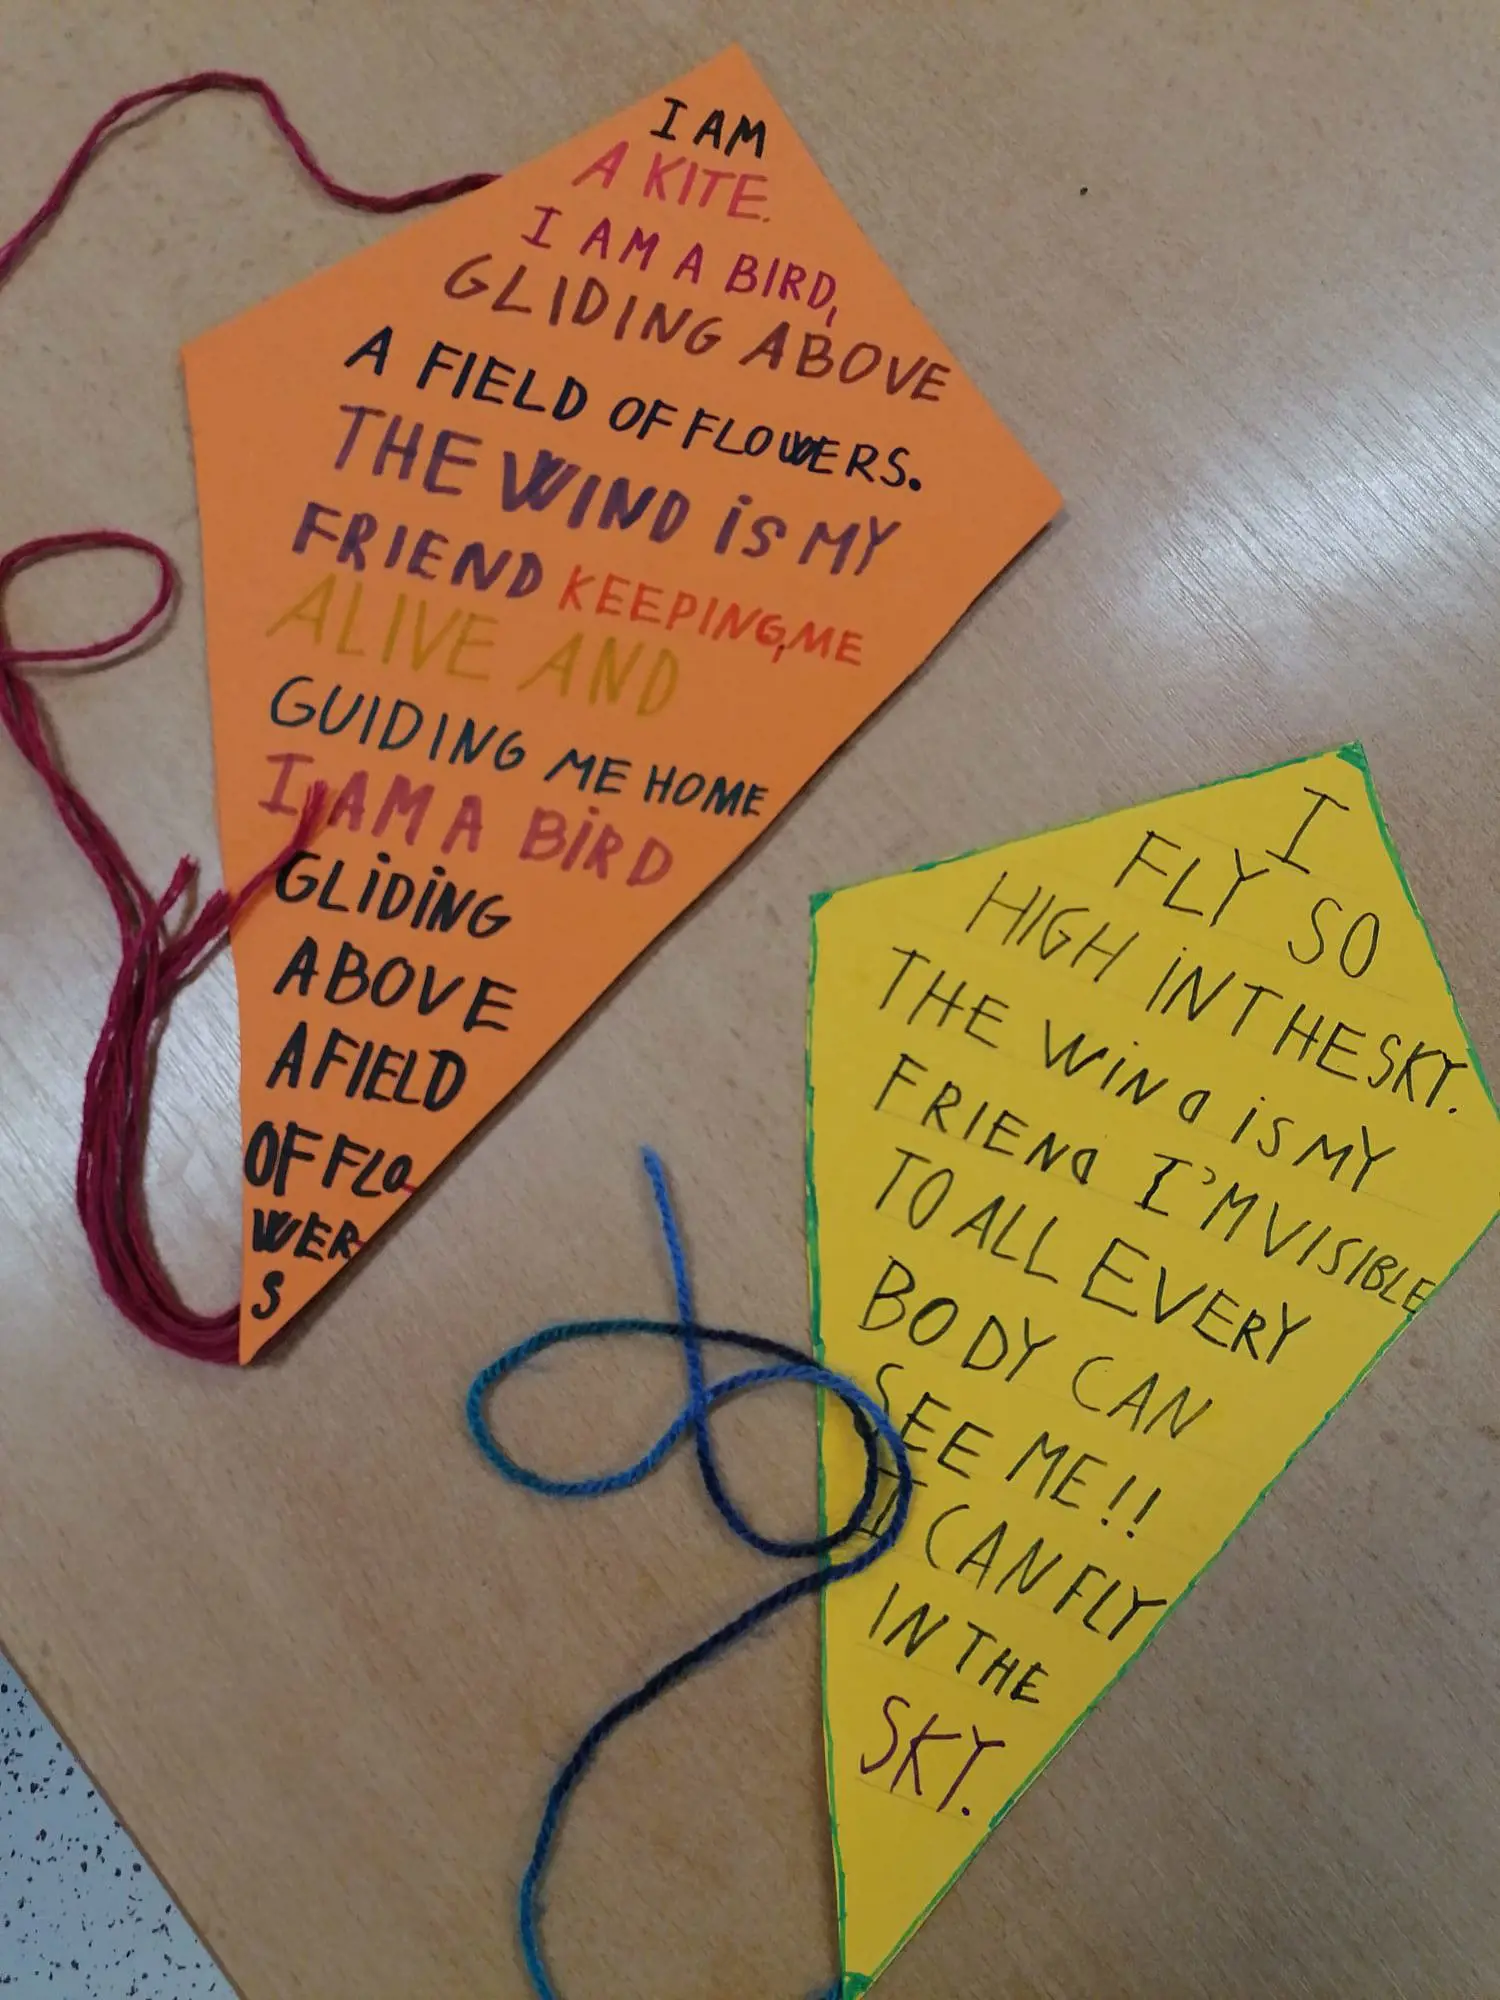 I AM
A KITE.
I AM A BIRD,
GLIDING ABOVE
A FIELD OF FLOWERS.
THE WIND iS MY
FRIEND KEEPING, ME
ALIVE AND
GUIDING ME HOME
I AM A BiRD
GLiDiNG
ABOVE
A FIELD
OF FLO
WER
S
I
FLY SO
HIGH iN THE SKY.
THE WiNd iS MY
FRIENd I'M VISIBLE
TO ALL EVERY
BODY CAN
SEE ME!!
I CAN FLY
IN THE
SKY.